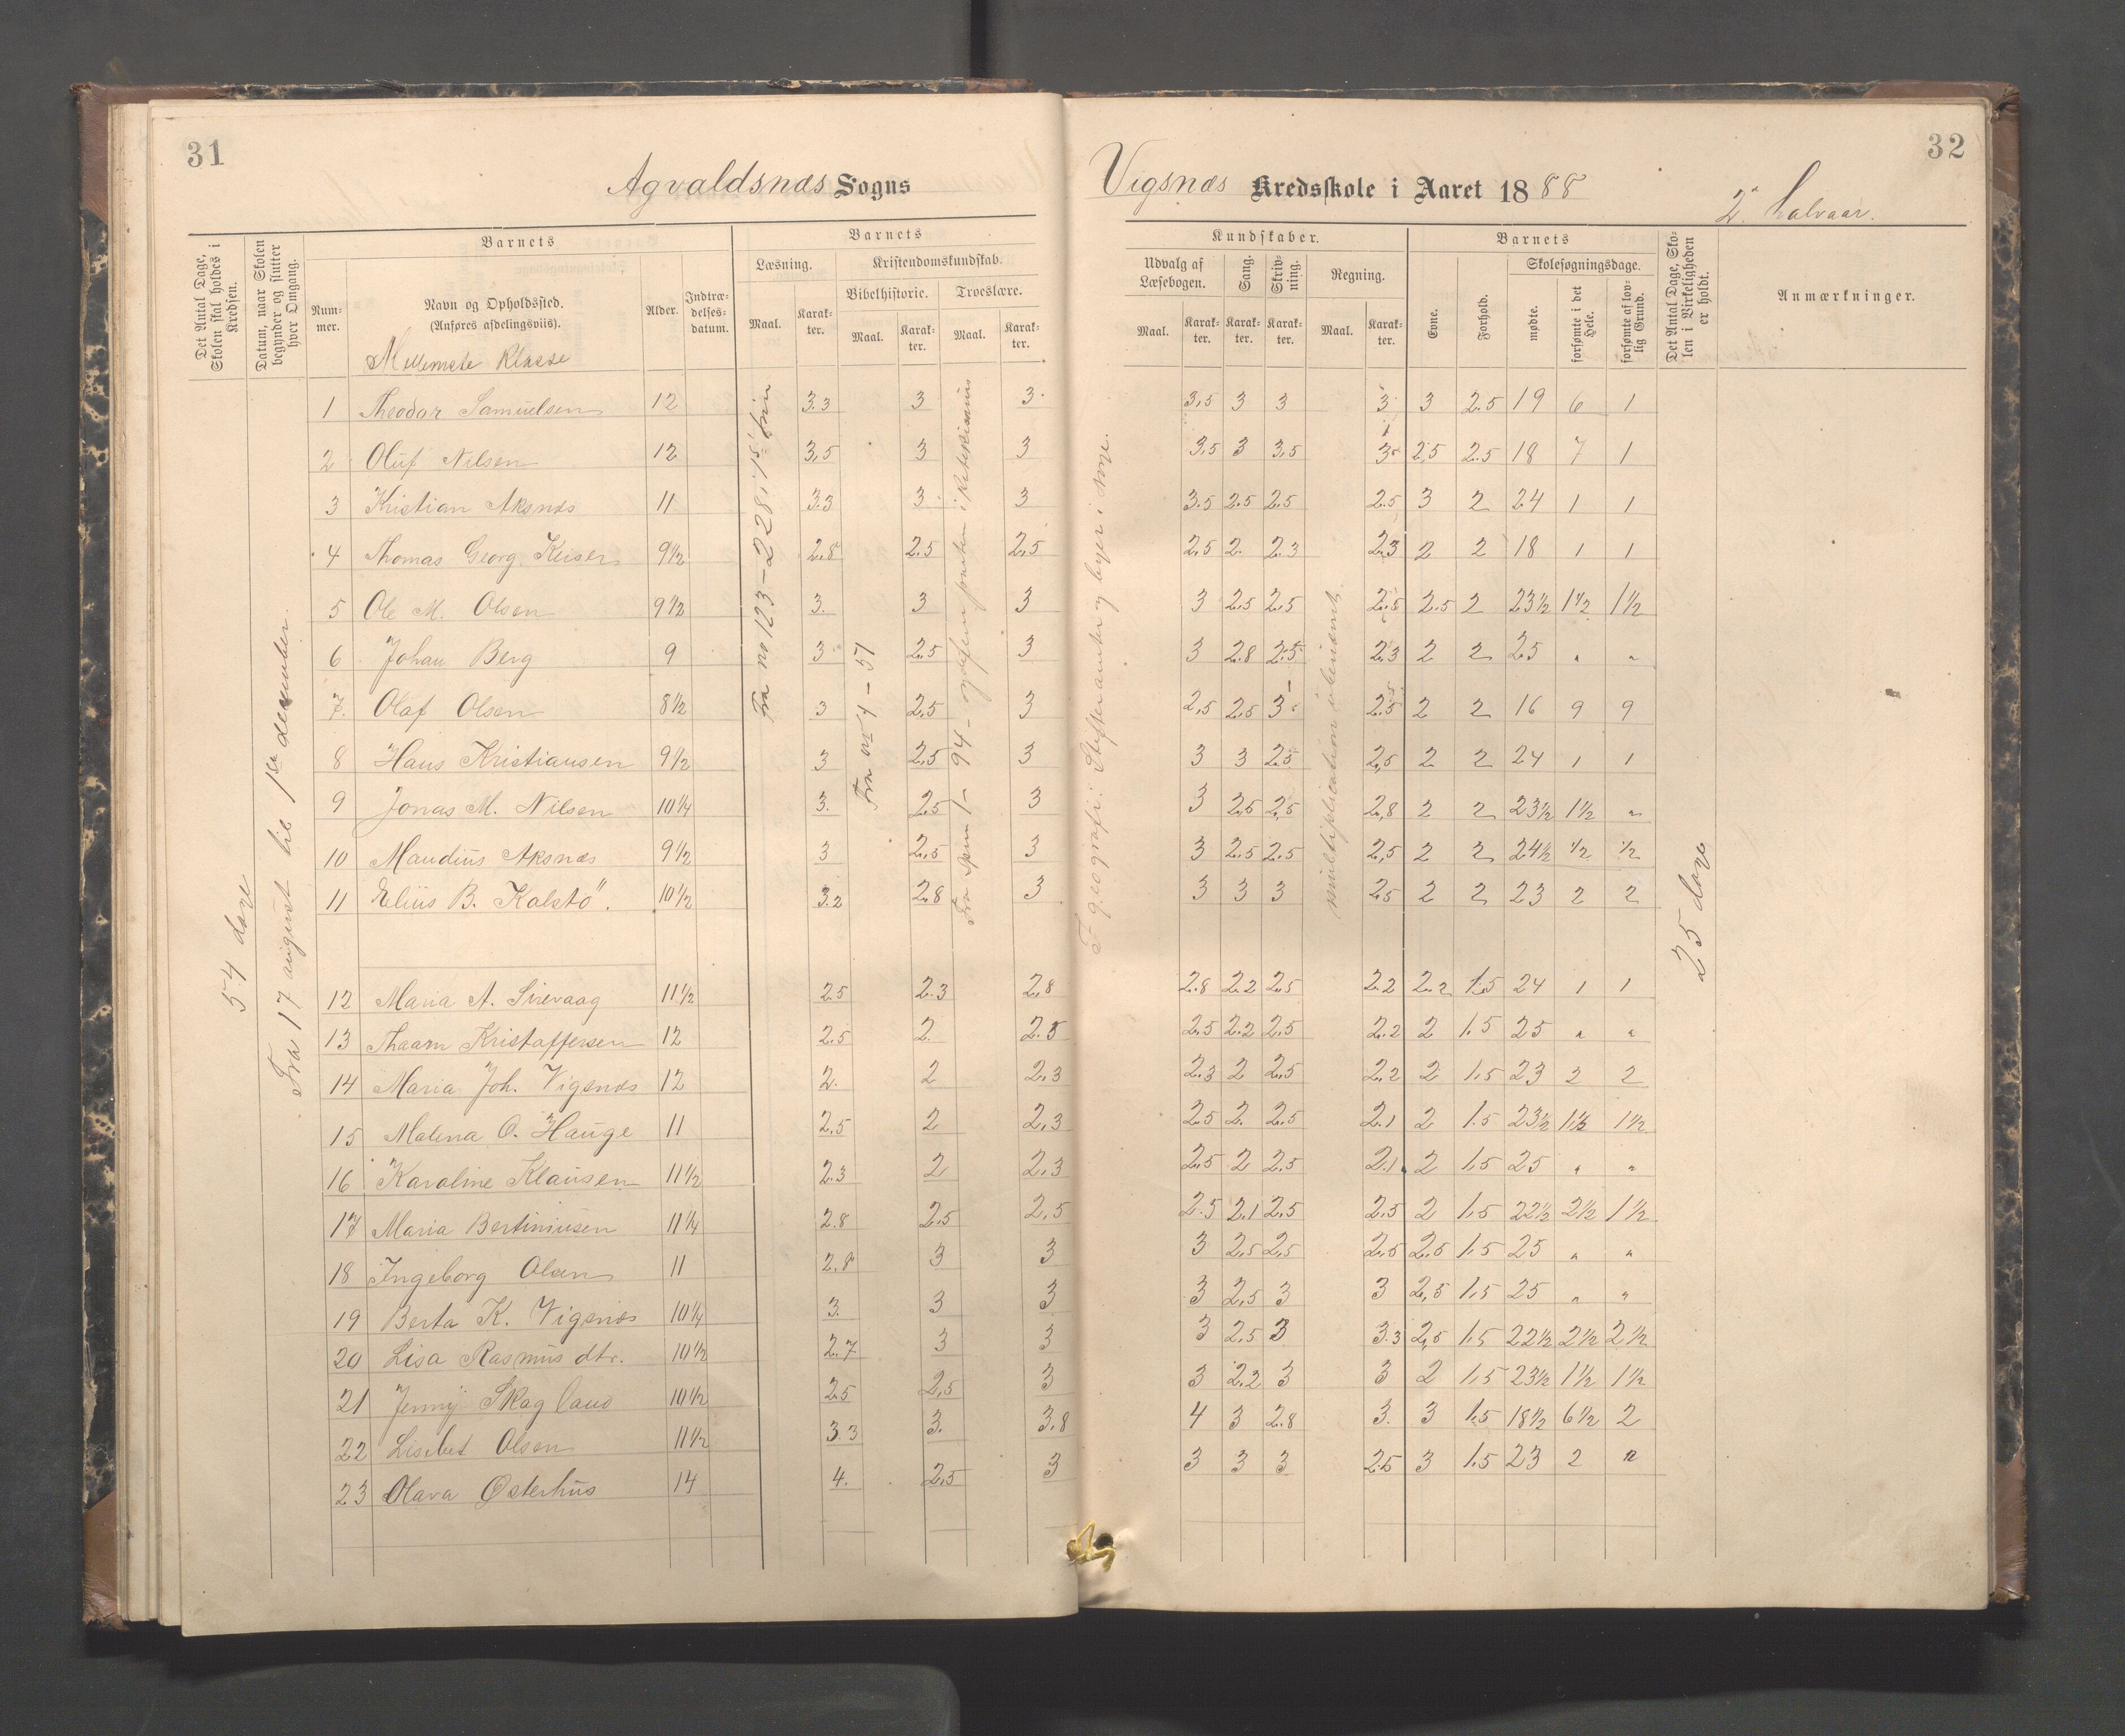 31
Agvaldsnæs Sogns
Det Antal Dage, Skolen skal holdes i Kredsen.
Datum, naar Skolen begynder og slutter hver Omgang.
Barnets
Nummer.
Navn og Opholdssted.
(Anføres afdelingsviis).
Mellemste Klasse
Alder.
Indtrædelsesdatum.
Barnets
Læsning.
Kristendomskundskab.
Bibelhistorie.
Troeslære.
Maal.
Karakter.
Maal.
Karakter.
Maal.
Karakter.
54 dage
Fra 17 august til 1ste desember.
Fra no 123 – 228 i 1st.
Fra no 4 – 51
Fra Spm 1 – 94 –
1 Theodor Samuelsen 12 3.3 3 3.
2 Oluf Nilsen 12 3,5 3 3
3 Kristian Aksnæs 11 3.3 3. 3
4 Thomas Georg Keiser 9 1/2 2,8 2.5 2,5
5 Ole M. Olsen 9 1/2 3. 3 3
6 Johan Berg 9 3 2.5 3
7. Olaf Olsen 8 1/2 3 2,5 3
8 Hans Kristiansen 9 1/2 3 2,5 3
9 Jonas M. Nilsen 10 1/4 3. 2.5 3
10 Maudius Aksnæs 9 1/2 3 2,5 3
11 Elius B. Kalstö. 10 1/2 3.2 2.8 3
12 Maria A. Sirevaag 11 1/2 2.5 2.3 2,8
13 Thaarn Kristoffersen 12 2.5 2. 2.5
14 Maria Joh. Vigsnæs 12 2. 2 2,3
15 Malena O. Hauge 11 2,5 2 2,3
16 Karoline Klausen 11 1/2 2.3 2 2,3
17 Maria Bertiniusen 11 1/4 2.8 2,5 2,5
18 Ingeborg Olsen 11 2.8 3 3
19 Berta K. Vigsnæs 10 1/4 3. 3 3
20 Lisa Rasmus dtr. 10 1/2 2.7 3 3
21 Jenny Skagland 10 1/2 2.5 2,5 3
22 Lisebet Olsen 11 1/2 3.3 3. 3,8
23 Olava Østerhus 14 4. 2,5 3
32
Vigsnæs Kredsskole i Aaret 1888
2. halvaar.
Kundskaber.
Udvalg af Læsebogen.
Sang.
Skrivning.
Regning.
Maal.
Karakter.
Karakter.
Karakter.
Maal.
Karakter.
Barnets
Evne.
Forhold.
Skolesøgningsdage.
mødte.
forsømte i det Hele.
forsømte af lovlig Grund.
Det Antal Dage, Skolen i Virkeligheden er holdt.
Anmærkninger.
I geografi: Stifter amter og byer i norge.
multiplication i ubenævnt.
25 dage
3,5 3 3 3 3 2.5 19 6 1
3,5 3 3,5 3 2,5 2.5 18 7 1
3.5 2.5 2.5 2.5 3 2 24 1 1
2,5 2. 2.3 2,3 2 2 18 1 1
3 2,5 2,5 2.5 2.5 2 23 1/2 1 1/2 1 1/2
3 2.8 2.5 2.3 2 2 25 " "
2,5 2,5 3 2.5 2 2 16 9 9
3 3 2.5 2,5 2 2 24 1 1
3 2,5 2,5 2,8 2 2 23 1/2 1 1/2 "
3 2.5 2.5 2,5 2 2 24 1/2 1/2 1/2
3 3 3 2.5 2 2 23 2 2
2.8 2.2 2.5 2.2 2.2 1.5 24 1 1
2,5 2.2 2,5 2.2 2 1.5 25 " "
2.3 2 2,5 2,2 2 1.5 23 2 2
2.5 2. 2,5 2.1 2 1.5 23 1/2 1 1/2 1 1/2
2,5 2 2,5 2.1 2 1.5 25 " "
2.5 2.1 2,5 2,5 2 1.5 22 1/2 2 1/2 1 1/2
3 2,5 2,5 2,5 2,5 1.5 25 " "
3 2,5 3 3 2,5 1.5 25 " "
3 2,5 3 3.3 2,5 1.5 22 1/2 2 1/2 2 1/2
3 2.2 3 3 2 1.5 23 1/2 1 1/2 1 1/2
4 3 2.8 3. 3 1.5 18 1/2 6 1/2 2
3 3 3 2.5 3 1.5 23 2 "